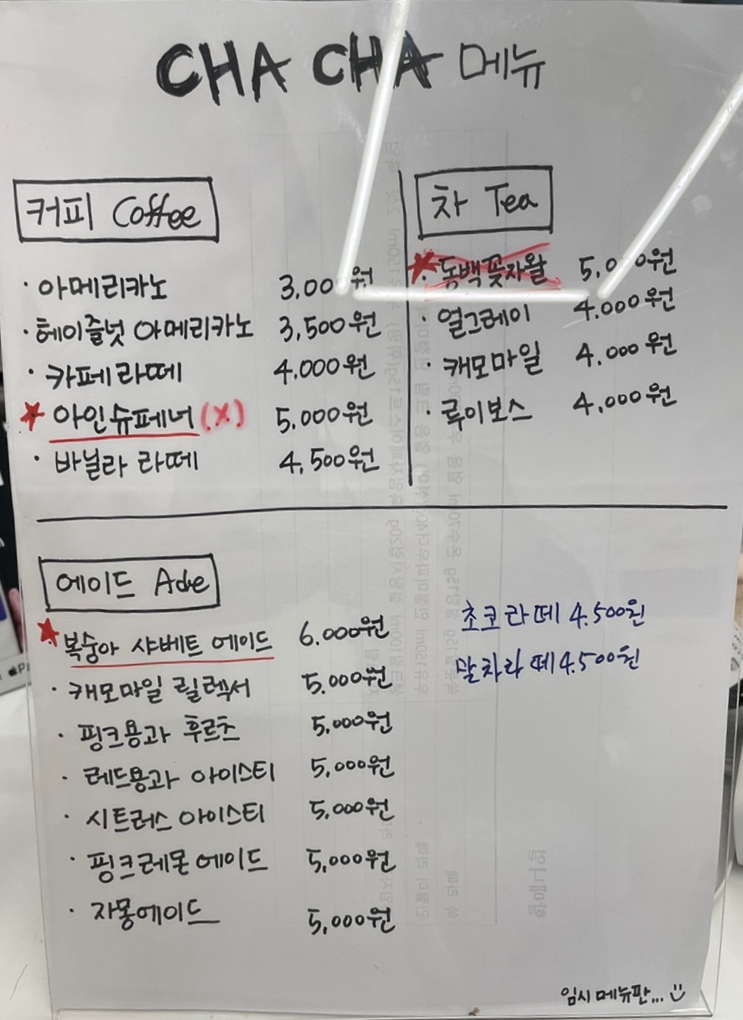 CHA CHA 메뉴
커피 Coffee
· 아메리카노 3,000원
· 헤이즐넛 아메리카노 3,500원
· 카페라떼 4,000원
★ 아인슈페너 (X) 5,000원
· 바닐라 라떼 4,500원
차 Tea
★ · 동백꽃자왈 5,000원
· 얼그레이 4,000원
· 캐모마일 4,000원
· 루이보스 4,000원
에이드 Ade
★ 복숭아 샤베트 에이드 6,000원
· 캐모마일 릴렉서 5,000원
· 핑크용과 후르츠 5,000원
· 레드용과 아이스티 5,000원
· 시트러스 아이스티 5,000원
· 핑크레몬에이드 5,000원
· 자몽에이드 5,000원
초코라떼 4,500원
말차라떼 4,500원
임시 메뉴판...